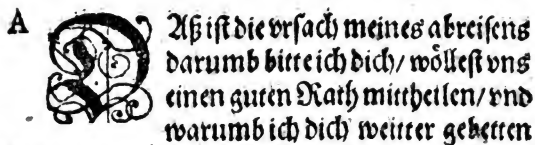 A DAß ist die vrsach meines abreisens
darumb bitte ich dich/ wöllest vns
einen guten Rath mittheilen/ vnd
warumb ich dich weitter gebetten